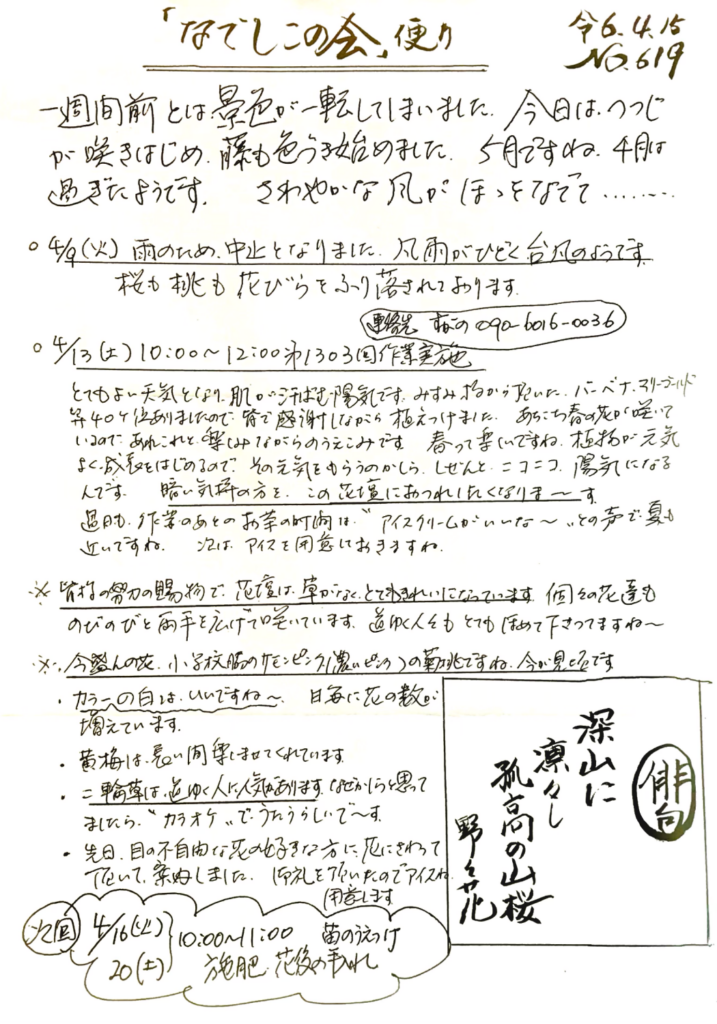 「なでしこの会」便り
令6.4.15
No.619
一週間前とは景色が一転してしまいました。今日は、つつじ
が咲きはじめ、藤も色づき始めました。5月ですね。4月は
過ぎたようです。 さわやかな風がほっとなでて………
○ 4/9(火) 雨のため、中止となりました。風雨がひどく台風のようです。
桜も桃も花びらをふり落されております。
連絡先 090-6016-0036
○ 4/13(土) 10:00〜12:00 第1303回作業実施
とてもよい天気となり、肌が汗ばむ陽気です。みすみ から頂いた、バーベナ、マリーゴールド
等40ケ位ありましたので、皆で感謝しながら植えつけました。あちこち春の花が咲いて
いるので、あれこれと楽しみながらのうえこみです。 春って楽しいですね。植物が元気
よく成長をはじめるので、その元気をもらうのかしら、しぜんと、ニコニコ、陽気になる
んです。 暗い気持の方を、この花壇におつれしたくなりま〜す。
過日も、作業のあとのお茶の時間は、"アイスクリームがいいな〜"との声で、夏も
近いですね。 次は、アイスを用意しておきますね。
※ 皆様の努力の賜物で、花壇は、草がなく、とてもきれいになっています。個々の花達も
のびのびと両手を広げて咲いています。道ゆく人々もとてもほめて下さってますね〜
※ 今盛んの花、小学校脇の (濃いピンク)の菊桃ですね。今が見頃です
・カラーの白は、いいですね〜。 日毎に花の数が
増えています。
・黄梅は、長い間楽しませてくれています。
・二輪草は、道ゆく人に人気があります。なぜかしらと思って
ましたら、"カラオケ"でうたうらしいで〜す。
・先日、目の不自由な花の好きな方に、花にさわって
頂いて、案内しました。御礼を頂いたのでアイスね
用意します
次回
4/16(火)
20(土)
10:00〜11:00 苗のうえつけ
施肥、花後の手入れ
俳句
深山に
凛々し
孤高の山桜
野々花